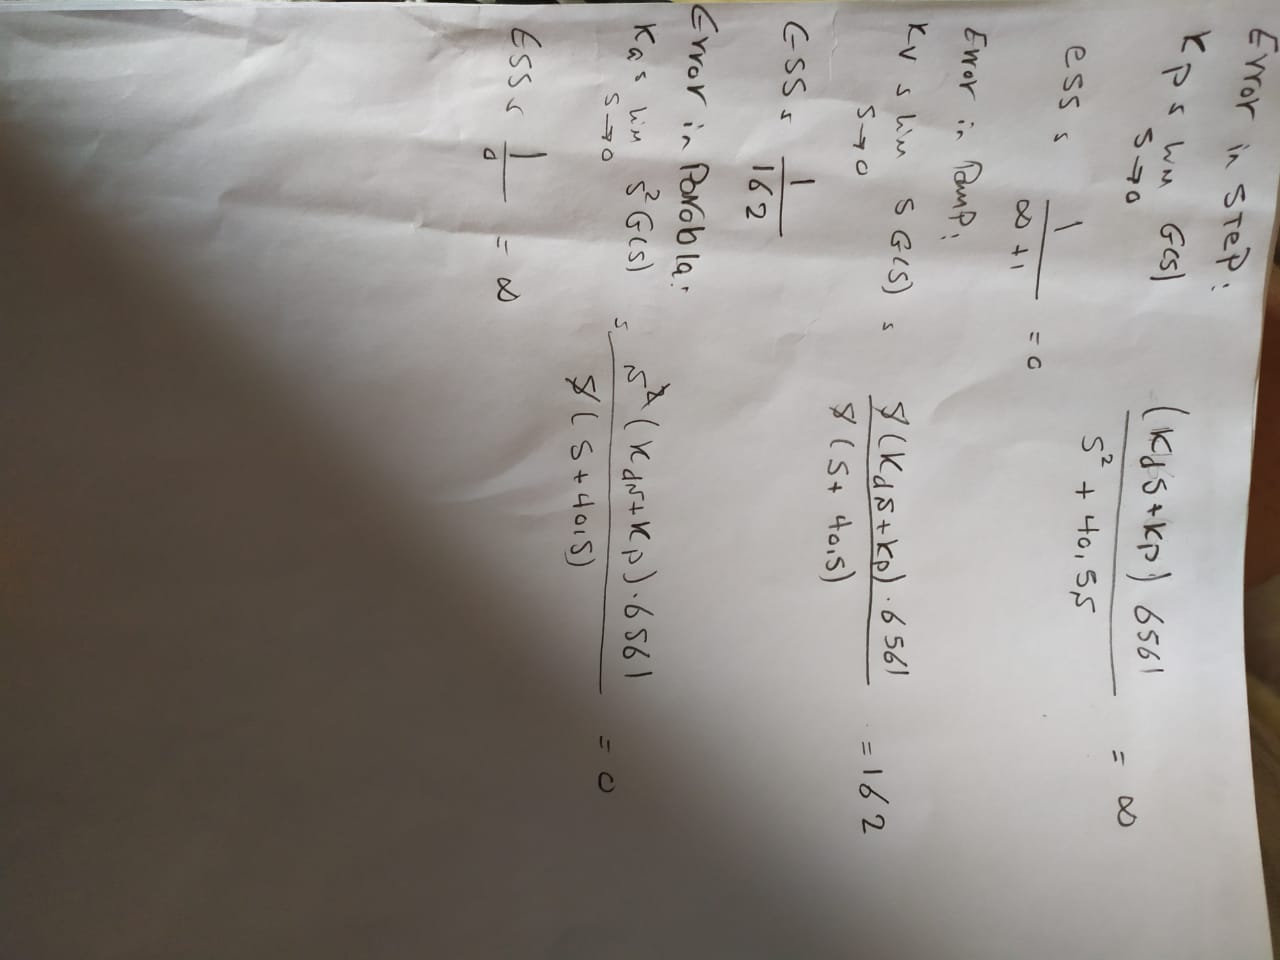 Error in STeP:
Kp s lim G(s) (KdS+KP) 6561 / S² + 40,5S = ∞
S→0
ess s 1 / ∞ +1 = 0
Error in RamP:
KV s lim S G(S) s S(KdS+KP) · 6561 / S (S + 40,5) = 162
S→0
ESS s 1 / 162
Error in Parobla:
Ka s lim S² G(S) s S² (KdS+KP) · 6561 / S (S + 40,5) = 0
S→0
ESS s 1 / 0 = ∞